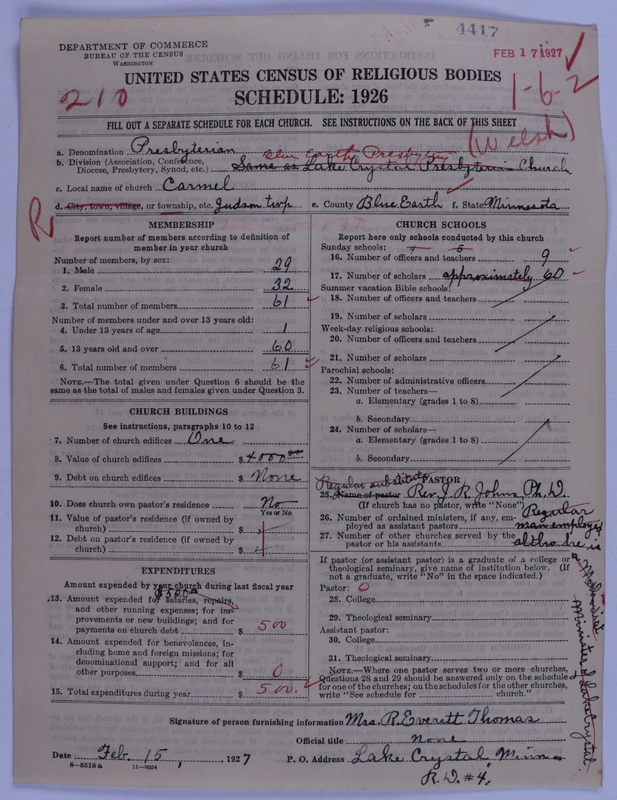 4417
DEPARTMENT OF COMMERCE
BUREAU OF THE CENSUS
WASHINGTON
FEB 17 1927
UNITED STATES CENSUS OF RELIGIOUS BODIES
SCHEDULE: 1926
210
1-6-2
FILL OUT A SEPARATE SCHEDULE FOR EACH CHURCH. SEE INSTRUCTIONS ON THE BACK OF THIS SHEET
(Welsh)
a. Denomination Presbyterian
Blue Earth Presbytery
b. Division (Association, Conference, Diocese, Presbytery, Synod, etc.) Same as Lake Crystal Presbyterian Church
c. Local name of church Carmel
R
d. City, town, village, or township, etc. Judson twp e. County Blue Earth f. State Minnesota
MEMBERSHIP
Report number of members according to definition of member in your church
Number of members, by sex:
1. Male 29
2. Female 32
3. Total number of members 61
Number of members under and over 13 years old:
4. Under 13 years of age 1
5. 13 years old and over 60
6. Total number of members 61
NOTE.—The total given under Question 6 should be the same as the total of males and females given under Question 3.
CHURCH BUILDINGS
See instructions, paragraphs 10 to 12
7. Number of church edifices One
8. Value of church edifices $4000.00
9. Debt on church edifices $ None
10. Does church own pastor's residence? No
Yes or No
11. Value of pastor's residence (if owned by church) $
12. Debt on pastor's residence (if owned by church) $
EXPENDITURES
Amount expended by your church during last fiscal year
$500
13. Amount expended for salaries, repairs, and other running expenses; for improvements or new buildings; and for payments on church debt $ 500
14. Amount expended for benevolences, including home and foreign missions; for denominational support; and for all other purposes $ 0
15. Total expenditures during year $ 500.
CHURCH SCHOOLS
Report here only schools conducted by this church
Sunday schools:
16. Number of officers and teachers 9
17. Number of scholars approximately 60
Summer vacation Bible schools:
18. Number of officers and teachers
19. Number of scholars
Week-day religious schools:
20. Number of officers and teachers
21. Number of scholars
Parochial schools:
22. Number of administrative officers
23. Number of teachers—
a. Elementary (grades 1 to 8)
b. Secondary
24. Number of scholars—
a. Elementary (grades 1 to 8)
b. Secondary
PASTOR
Regular substitute
25. Name of pastor Rev. J. R. Johns, Ph. D.
(If church has no pastor, write "None")
26. Number of ordained ministers, if any, employed as assistant pastors
27. Number of other churches served by the pastor or his assistants
Regular man employed altho he is a Methodist Minister of Lake Crystal.
If pastor (or assistant pastor) is a graduate of a college or theological seminary, give name of institution below. (If not a graduate, write "No" in the space indicated.)
Pastor: 0
28. College
29. Theological seminary
Assistant pastor:
30. College
31. Theological seminary
NOTE.—Where one pastor serves two or more churches, Questions 28 and 29 should be answered only on the schedule for one of the churches; on the schedules for the other churches, write "See schedule for church."
Signature of person furnishing information Mrs. R. Everett Thomas
Official title none
Date Feb. 15, 1927 P. O. Address Lake Crystal, Minn.
R. D. #4.
8—5518 a 11—9054